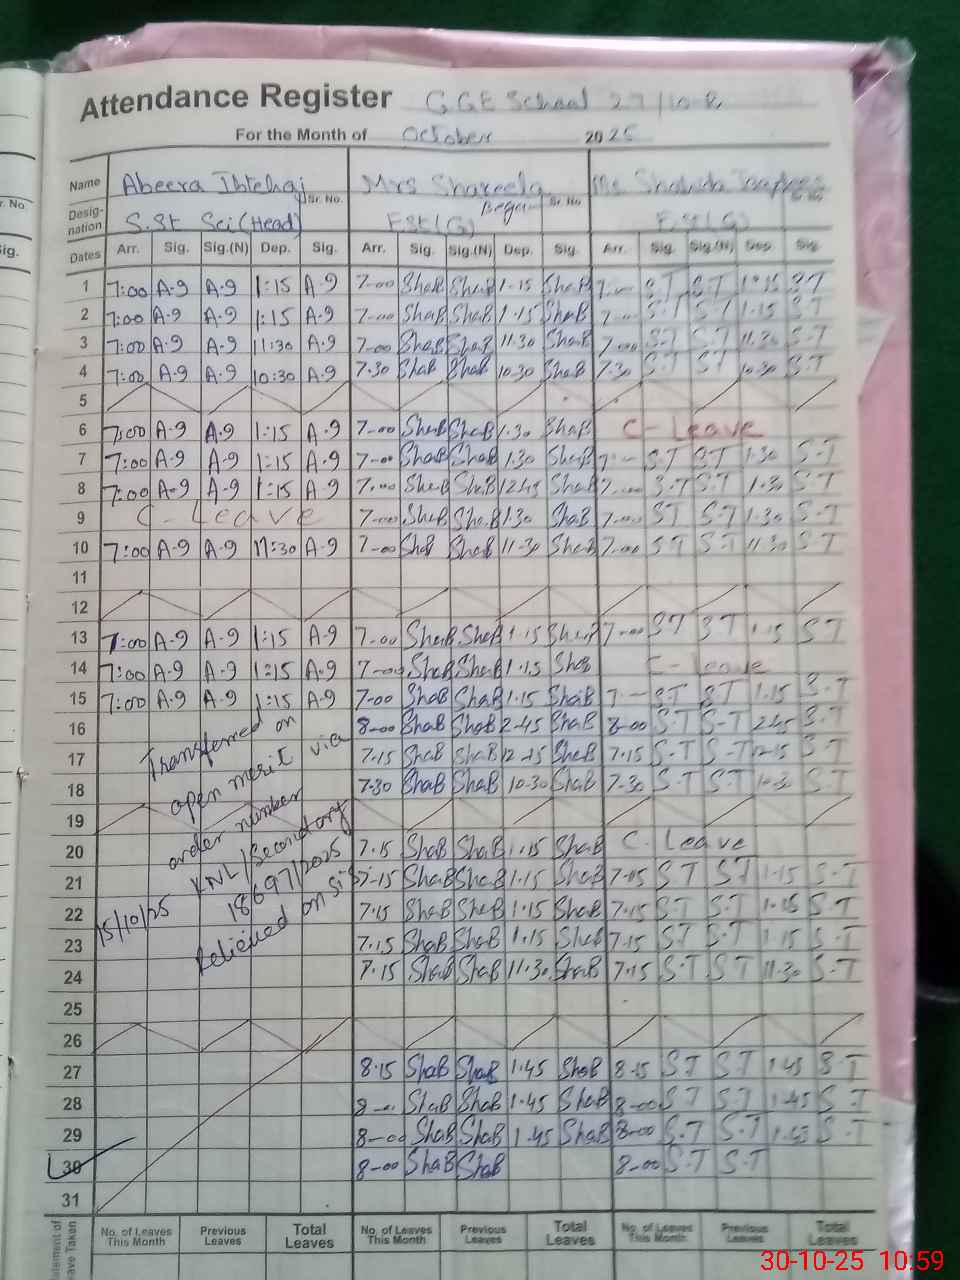 Attendance Register G.G.E School 27/10-R
For the Month of October 2025
Name Abeera Ibtehaj Sr. No. Mrs Shakeela Begum Sr. No. Ms. Shahida
Desig-nation S.St Sci (Head) E.St (G) E.St (G)
Dates Arr. Sig. Sig.(N) Dep. Sig. Arr. Sig. Sig.(N) Dep. Sig. Arr. Sig. Sig.(N) Dep. Sig.
1 7:00 A-9 A-9 1:15 A-9 7-00 ShaB ShaB 1-15 ShaB 7- S.T S.T 1-15 S.T
2 7:00 A-9 A-9 1:15 A-9 7-00 ShaB ShaB 1-15 ShaB 7- S.T S.T 1-15 S.T
3 7:00 A-9 A-9 11:30 A-9 7-00 ShaB ShaB 11.30 ShaB 7-00 S.T S.T 11.30 S.T
4 7:00 A-9 A-9 10:30 A-9 7.30 ShaB ShaB 10-30 ShaB 7-30 S.T S.T 10-30 S.T
5
6 7:00 A-9 A-9 1:15 A-9 7-00 ShaB ShaB 1-30 ShaB C-Leave
7 7:00 A-9 A-9 1:15 A-9 7-00 ShaB ShaB 1.30 ShaB 7- S.T S.T 1-30 S-T
8 7:00 A-9 A-9 1:15 A-9 7-00 ShaB ShaB 1245 ShaB 7-00 S.T S.T 1-30 S-T
9 C-Leave 7-00 ShaB ShaB 1-30 ShaB 7-00 ST S-T 1-30 S-T
10 7:00 A-9 A-9 11:30 A-9 7-00 ShaB ShaB 11-30 ShaB 7-00 S T S-T 11-30 S-T
11
12
13 7:00 A-9 A-9 1:15 A-9 7-00 ShaB ShaB 1-15 ShaB 7-00 S T S T 1-15 S T
14 7:00 A-9 A-9 1:15 A-9 7-00 ShaB ShaB 1-15 ShaB C-leave
15 7:00 A-9 A-9 1:15 A-9 7-00 ShaB ShaB 1-15 ShaB 7- S T S T 1-15 S-T
16 8-00 ShaB ShaB 2-45 ShaB 8-00 S.T S-T 2-45 S-T
17 7.15 ShaB ShaB 12-15 ShaB 7-15 S-T S-T 12-15 S T
18 7-30 ShaB ShaB 10-30 ShaB 7-30 S-T S-T 10-30 S T
Transferred on
open merit via
order number
KNL/Secondary
18697/2025
Relieved on
15/10/25
19
20 7.15 ShaB ShaB 1-15 ShaB C-Leave
21 7-15 ShaB ShaB 1-15 ShaB 7-15 S T S T 1-15 S-T
22 7.15 ShaB ShaB 1-15 ShaB 7-15 S-T S-T 1-15 S-T
23 7.15 ShaB ShaB 1-15 ShaB 7-15 S.T S-T 1-15 S T
24 7.15 ShaB ShaB 11.30 ShaB 7-15 S-T S T 11-30 S-T
25
26
27 8.15 ShaB ShaB 1.45 ShaB 8-15 S T S T 1-45 S-T
28 8- ShaB ShaB 1-45 ShaB 8-00 S T S T 1-45 S T
29 8-00 ShaB ShaB 1.45 ShaB 8-00 S.T S-T 1-45 S-T
30 8-00 ShaB ShaB 8-00 S-T S-T
31
No. of Leaves This Month Previous Leaves Total Leaves No. of Leaves This Month Previous Leaves Total Leaves No. of Leaves This Month Previous Leaves Total Leaves
30-10-25 10:59